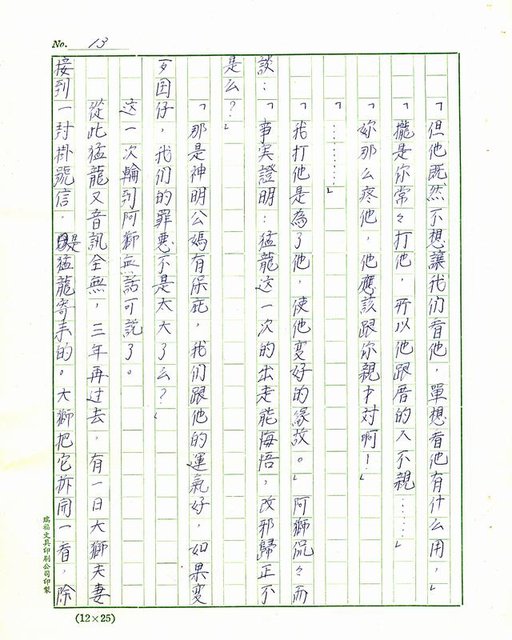 No. 13
「但他既然不想讓我们看他，單想看他有什么用，」
「攏是你常々打他，所以他跟厝的人不親……」
「妳那么疼他，他應該跟你親才对啊！」
「………」
「我打他是為了他，使他变好的緣故。」阿獅侃々而
談：「事实證明：猛龍这一次的出走能悔悟，改邪歸正不
是么？」
「那是神明公媽有保庇，我们跟他的運氣好，如果变
歹囝仔，我们的罪惡不是太大了么？」
这一次輪到阿獅無話可說了。
從此猛龍又音訊全無，三年再过去，有一日大獅夫妻
接到一封掛號信，是猛龍寄來的。大獅把它拆開一看，除
瑞福文具印刷公司印製
(12×25)